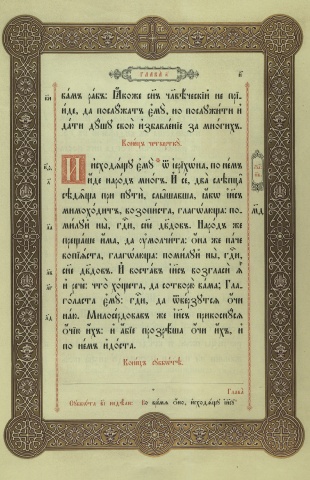 ГЛАВА к҃
вамъ рабъ: Ꙗ҆́коже сн҃ъ чл҃вѣ́ческїй не прї-
и́де, да послꙋ́жатъ є҆мꙋ̀, но послꙋжи́ти и҆
да́ти дꙋ́шꙋ свою̀ и҆збавле́нїе за мно́гихъ.
Коне́цъ четверткꙋ̀.
И҆ и҆сходѧ́щꙋ є҆мꙋ̀ ѿ і҆ерїхѡ́на, по не́мъ
и҆́де наро́дъ мно́гъ. И҆ сѐ, два̀ слѣпца̑
сѣдѧ̑ща при пꙋтѝ, слы́шавша, ꙗ҆́кѡ і҆и҃съ
мимохо́дитъ, возопи́ста, глаго́люща: по-
ми́лꙋй ны̀, гдⷭ҇и, сн҃е дв҃довъ. Наро́дъ же
прещѧ́ше и҆́ма, да ᲂу҆молчи́та: ѻ҆на̑ же па́че
вопїѧ́ста, глагѡ́люща: поми́лꙋй ны̀, гдⷭ҇и,
сн҃е дв҃довъ. И҆ воста́въ і҆и҃съ возгласѝ ѧ҆̀
и҆ речѐ: что̀ хо́щета, да сотворю̀ ва́ма; Гла-
го́ласта є҆мꙋ̀: гдⷭ҇и, да ѿве́рзꙋтсѧ ѻ҆́чи
на́ю. Милосе́рдовавъ же і҆и҃съ прикоснꙋ́сѧ
ѻ҆́чїю и҆́хъ: и҆ а҆́бїе прозрѣ́ша ѻ҆́чи и҆́хъ, и҆
по не́мъ и҆до́ста.
Коне́цъ сꙋббѡ́тѣ.
Глава̀
Сꙋббѡ́та в҃і недѣ́ли: Во вре́мѧ ѻ҆́но, и҆сходѧ́щꙋ і҆и҃сꙋ